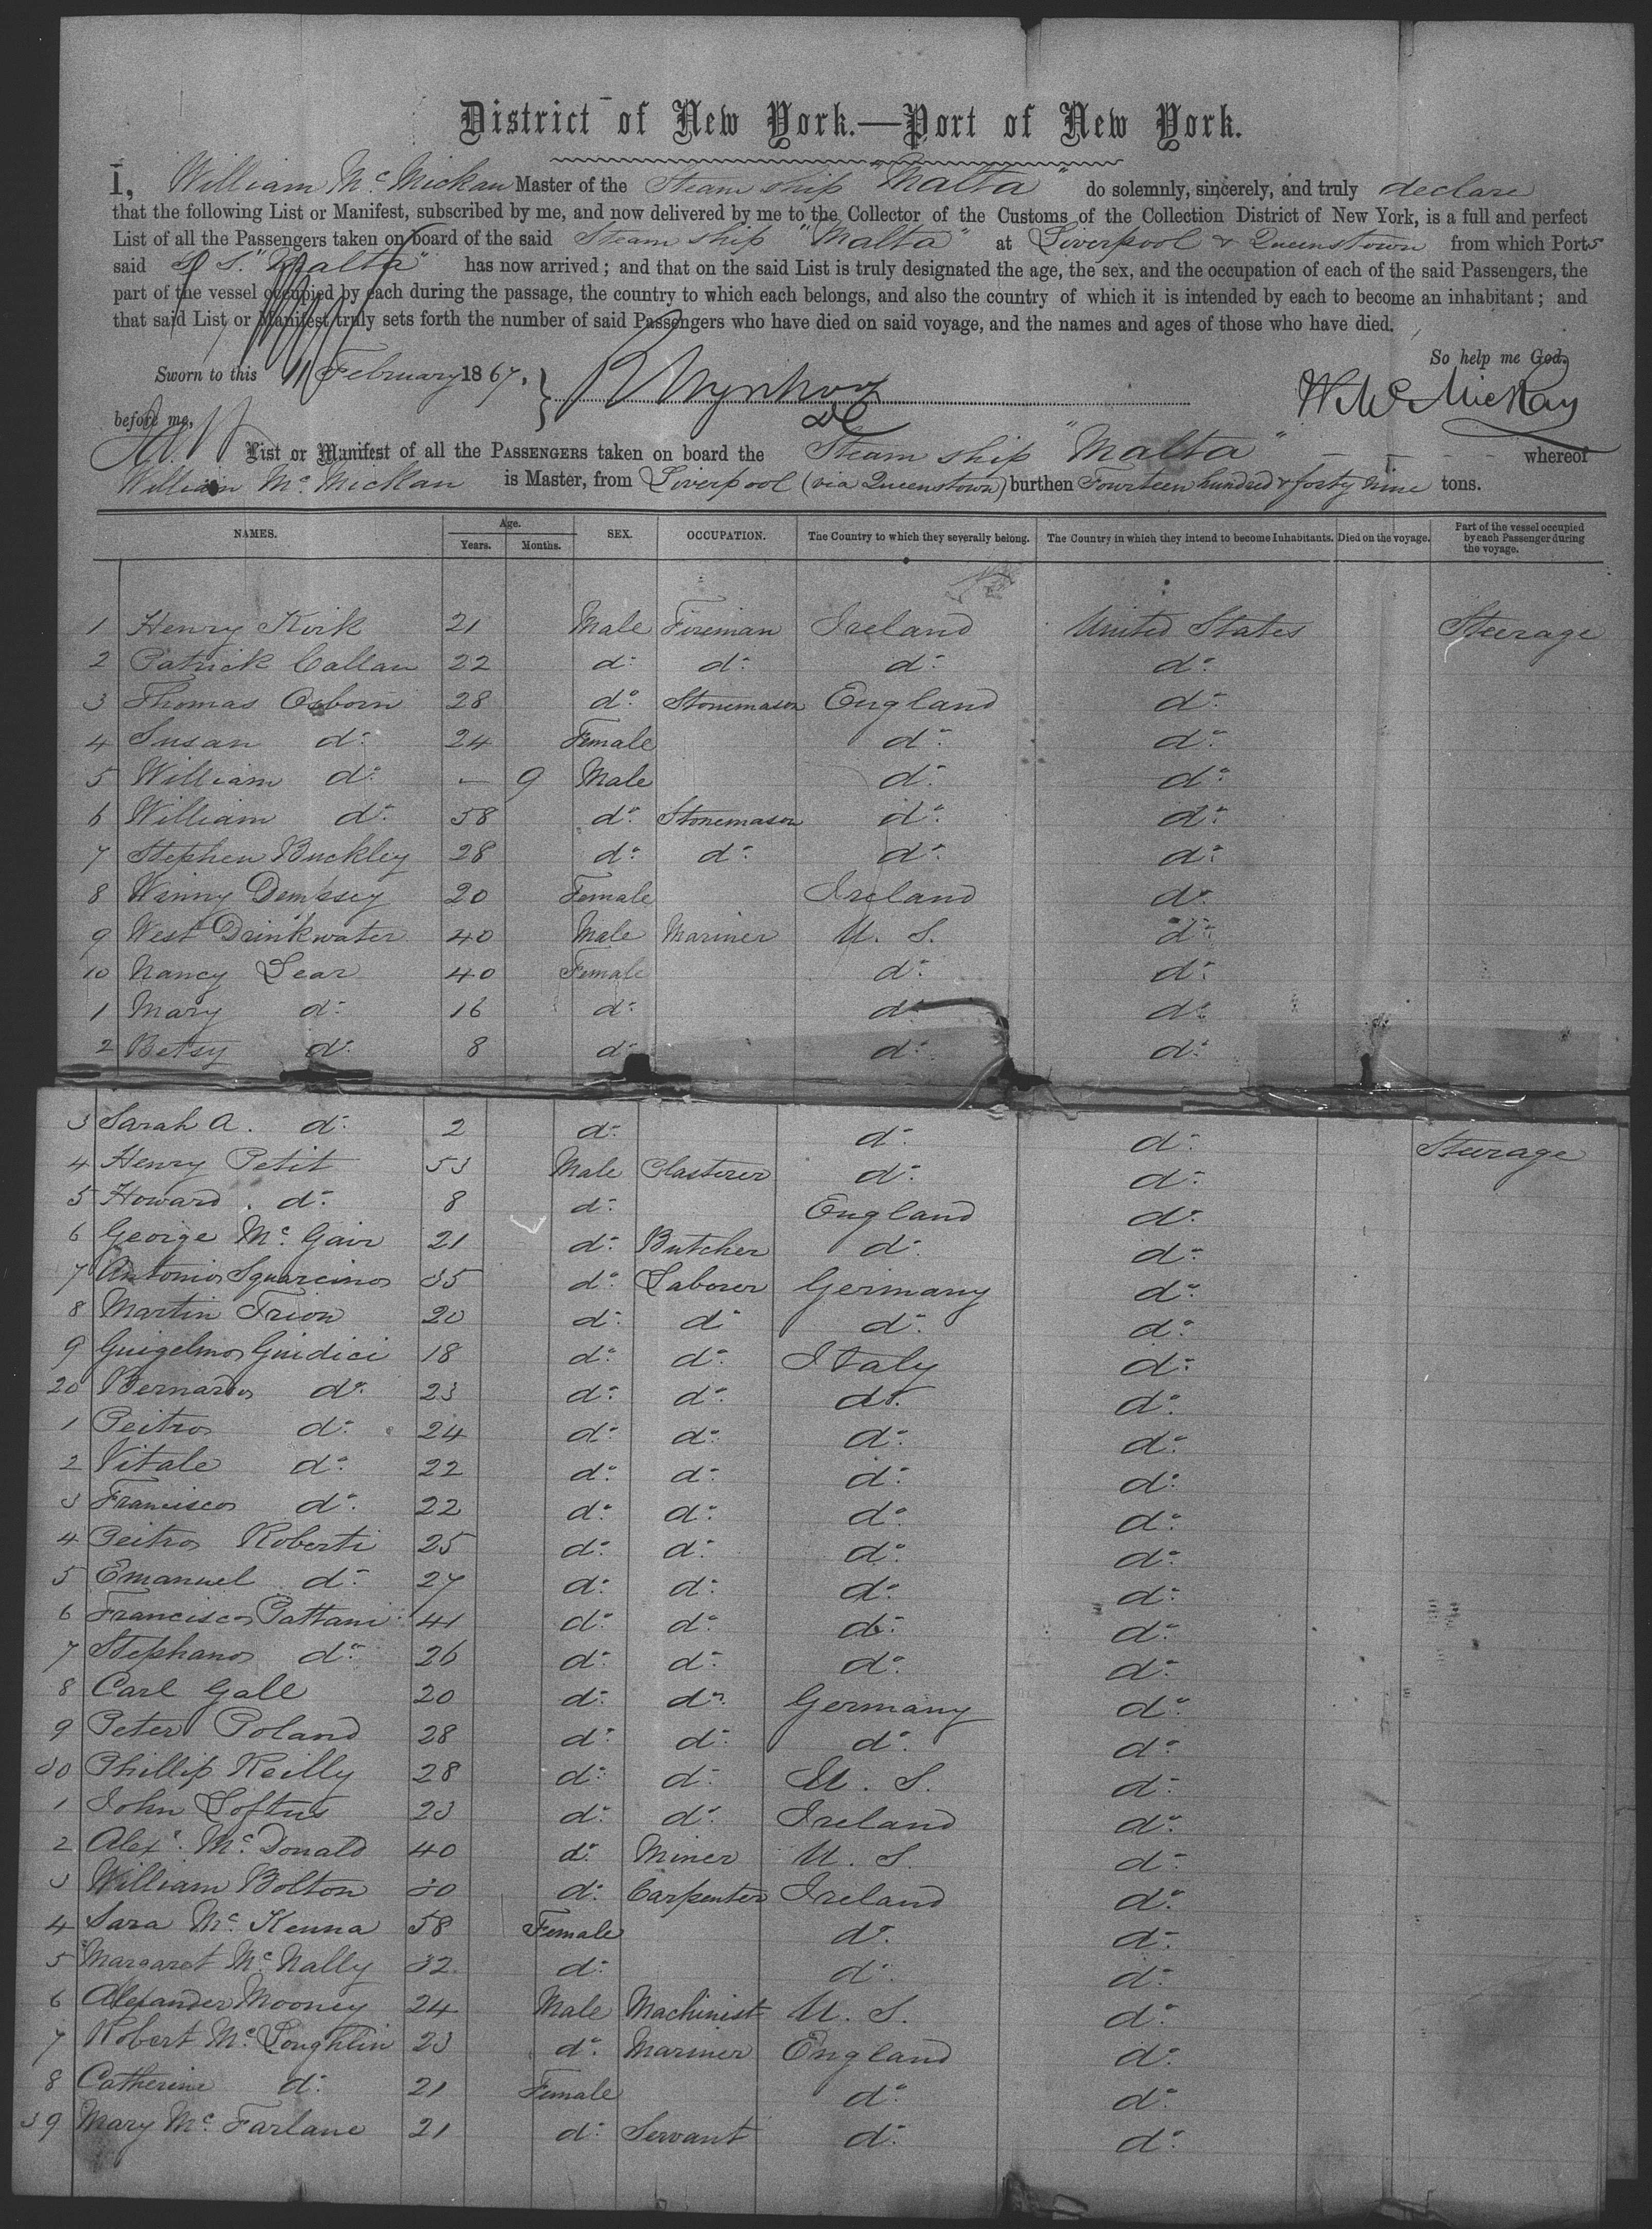 District of New York.—Port of New York.
I, William Mc Mickan Master of the Steam ship "Malta" do solemnly, sincerely, and truly declare
that the following List or Manifest, subscribed by me, and now delivered by me to the Collector of the Customs of the Collection District of New York, is a full and perfect
List of all the Passengers taken on board of the said Steam ship "Malta" at Liverpool & Queenstown from which Ports
said S S. "Malta" has now arrived; and that on the said List is truly designated the age, the sex, and the occupation of each of the said Passengers, the
part of the vessel occupied by each during the passage, the country to which each belongs, and also the country of which it is intended by each to become an inhabitant; and
that said List or Manifest truly sets forth the number of said Passengers who have died on said voyage, and the names and ages of those who have died.
So help me God.
Sworn to this 11 February 1867,
W. Mc Mickan
before me,
List or Manifest of all the PASSENGERS taken on board the Steam ship "Malta" whereof
William Mc Mickan is Master, from Liverpool (via Queenstown) burthen Fourteen hundred & forty nine tons.
NAMES. Age. Years. Months. SEX. OCCUPATION. The Country to which they severally belong. The Country in which they intend to become Inhabitants. Died on the voyage. Part of the vessel occupied by each Passenger during the voyage.
1 Henry Kirk 21 Male Fireman Ireland United States Steerage
2 Patrick Callan 22 do do do do
3 Thomas Osborn 28 do Stonemason England do
4 Susan do 24 Female do do
5 William do — 9 Male do do
6 William do 58 do Stonemason do do
7 Stephen Buckley 28 do do do do
8 Winny Dempsey 20 Female Ireland do
9 West Drinkwater 40 Male Mariner U. S. do
10 Nancy Lear 40 Female do do
1 Mary do 16 do do do
2 Betsy do 8 do do do
3 Sarah A. do 2 do do do Steerage
4 Henry Petit 53 Male Plasterer do do
5 Howard do 8 do England do
6 George Mc Gair 21 do Butcher do do
7 Antonio Squarcino 35 do Laborer Germany do
8 Martin Trion 20 do do do do
9 Guigelmo Guidici 18 do do Italy do
20 Bernardo do 23 do do do do
1 Peitro do 24 do do do do
2 Vitale do 22 do do do do
3 Francisco do 22 do do do do
4 Peitro Roberti 25 do do do do
5 Emanuel do 27 do do do do
6 Francisco Pattani 41 do do do do
7 Stephano do 26 do do do do
8 Carl Gall 20 do do Germany do
9 Peter Poland 28 do do do do
30 Phillip Reilly 28 do do U. S. do
1 John Loftus 23 do do Ireland do
2 Alexr Mc Donald 40 do Miner U. S. do
3 William Bolton 30 do Carpenter Ireland do
4 Sara Mc Kenna 58 Female do do
5 Margaret Mc Nally 32 do do do
6 Alexander Mooney 24 Male Machinist U. S. do
7 Robert Mc Loughlin 23 do Mariner England do
8 Catherine do 21 Female do do
39 Mary Mc Farlane 21 do Servant do do